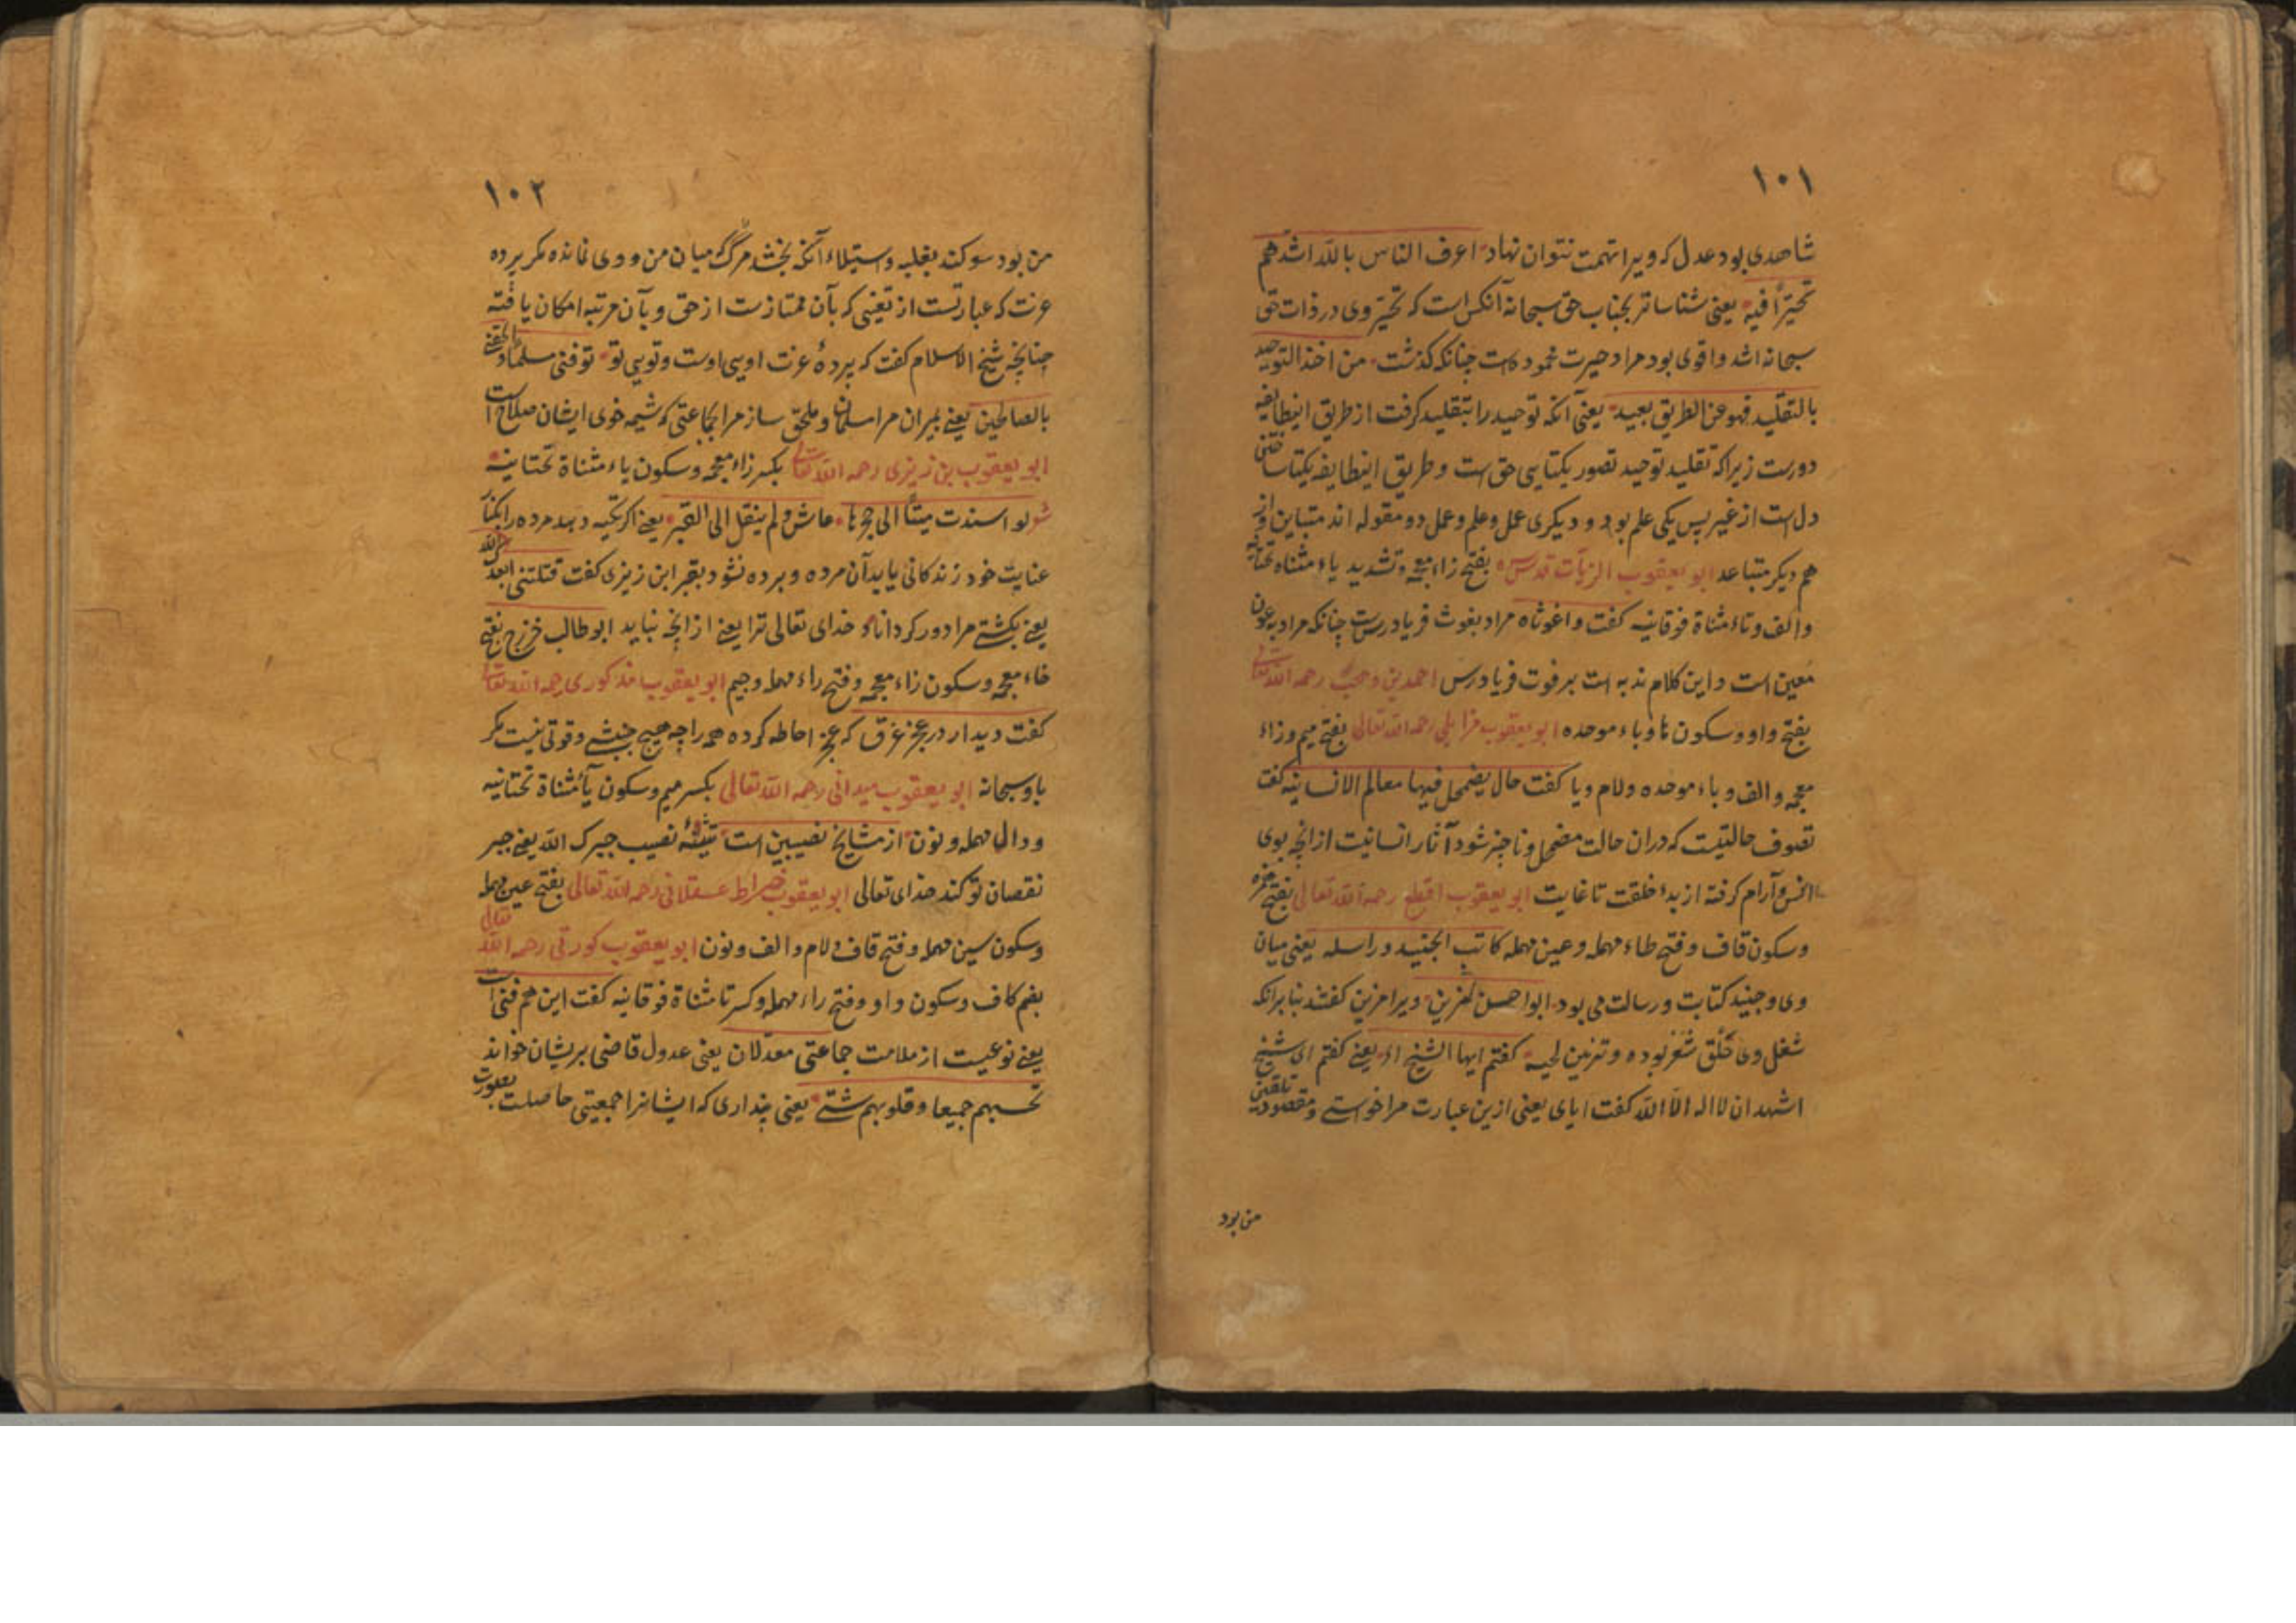 ١٠١
شاهدی بود عدل که ویرا تهمت نتوان نهاد اعرف الناس بالله اشدهم
تحیّراً فیه یعنی شناساتر بجناب حق سبحانه آنکس است که تحیّر وی در ذات حق
سبحانه اشد و اقوی بود مراد حیرت محمود است چنانکه گذشت من اخذ التوحید
بالتقلید فهو عن الطریق بعید یعنی آنکه توحید را بتقلید گرفت از طریق اینطایفه
دورست زیرا که تقلید توحید تصور یکتایی حق است و طریق اینطایفه یکتا ساختن
دل است از غیر پس یکی علم بود و دیگری عمل و علم و عمل دو مقوله اند متباین و از
هم دیگر متباعد ابو یعقوب الزیات قدس سره بفتح زاء معجمه و تشدید یاء مثناه تحتانیه
و الف و تاء مثناة فوقانیه گفت واغوثاه مراد بغوث فریادرس است چنانکه مراد بعون
معین است و این کلام ندبه است بر فوت فریادرس احمد بن وهب رحمه الله تعالی
بفتح واو و سکون ها و باء موحده ابو یعقوب مزابلی رحمه الله تعالی بفتح میم و زاء
معجمه و الف و باء موحده و لام و یا گفت حال یضمحل فیها معالم الانسانیه گفت
تصوف حالتیست که دران حالت مضمحل و ناچیز شود آثار انسانیت از انچه بوی
انس و آرام گرفته از بدء خلقت تا غایت ابو یعقوب اقطع رحمه الله تعالی بفتح همزه
و سکون قاف و فتح طاء مهمله و عین مهمله کاتب الجنید و راسله یعنی میان
وی و جنید کتابت و رسالت می بود ابو الحسن المزین ویرا مزین گفتند بنابرانکه
شغل وی حَلْق شَعَر بوده و تزیین لحیه گفتم ایها الشیخ اه یعنی گفتم ای شیخ
اشهد ان لا اله الا الله گفت ایای یعنی ازین عبارت مرا خواستی و مقصود تلقین
من بود
١٠٢
من بود سوگند بغلبه و استیلاء آنکه نچشد مرگ میان من و وی نمانده مگر پرده
عزت که عبارتست از تعینی که بآن ممتازست از حق و بآن مرتبه امکان یافته
چنانچه شیخ الاسلام گفت که پردهٔ عزت اویی اوست و تویی تو توفنی مسلما و الحقنی
بالصالحین یعنی بمیران مرا مسلمان و ملحق ساز مرا بجماعتی که شیمه خوی ایشان صلاح است
ابو یعقوب بن زیزی رحمه الله تعالی بکسر زاء معجمه و سکون یاء مثناة تحتانیه
شو لو اسندت میتاً الی حجرها عاش و لم ینقل الی القبر یعنی اگر تکیه دهد مرده را بکنار
عنایت خود زندگانی یابد آن مرده و برده نشود بقبر ابن زیزی گفت قتلتنی ابعدک الله
یعنی بکشتی مرا دور گرداناد خدای تعالی ترا یعنی از انچه نباید ابو طالب خزرج بفتح
خاء معجمه و سکون زاء معجمه و فتح راء مهمله و جیم ابو یعقوب مذکوری رحمه الله تعالی
گفت دیدار در عجز غرق که عجز احاطه کرده همه را چه هیچ جنبشی و قوتی نیست مگر
باو سبحانه ابو یعقوب میدانی رحمه الله تعالی بکسر میم و سکون یاء مثناة تحتانیه
و دال مهمله و نون از مشایخ نصیبین است نصیب جبرک الله یعنی جبر
نقصان تو کند خدای تعالی ابو یعقوب خراط عسقلانی رحمه الله تعالی بفتح عین مهمله
و سکون سین مهمله و فتح قاف و لام و الف و نون ابو یعقوب کورتی رحمه الله تعالی
بضم کاف و سکون واو و فتح راء مهمله و کسر تا مثناة فوقانیه گفت این هم فنی است
یعنی نوعیست از ملامت جماعتی معدلان یعنی عدول قاضی بریشان خواند
تحسبهم جمیعا و قلوبهم شتی یعنی پنداری که ایشانرا جمعیتی حاصلست بصورت